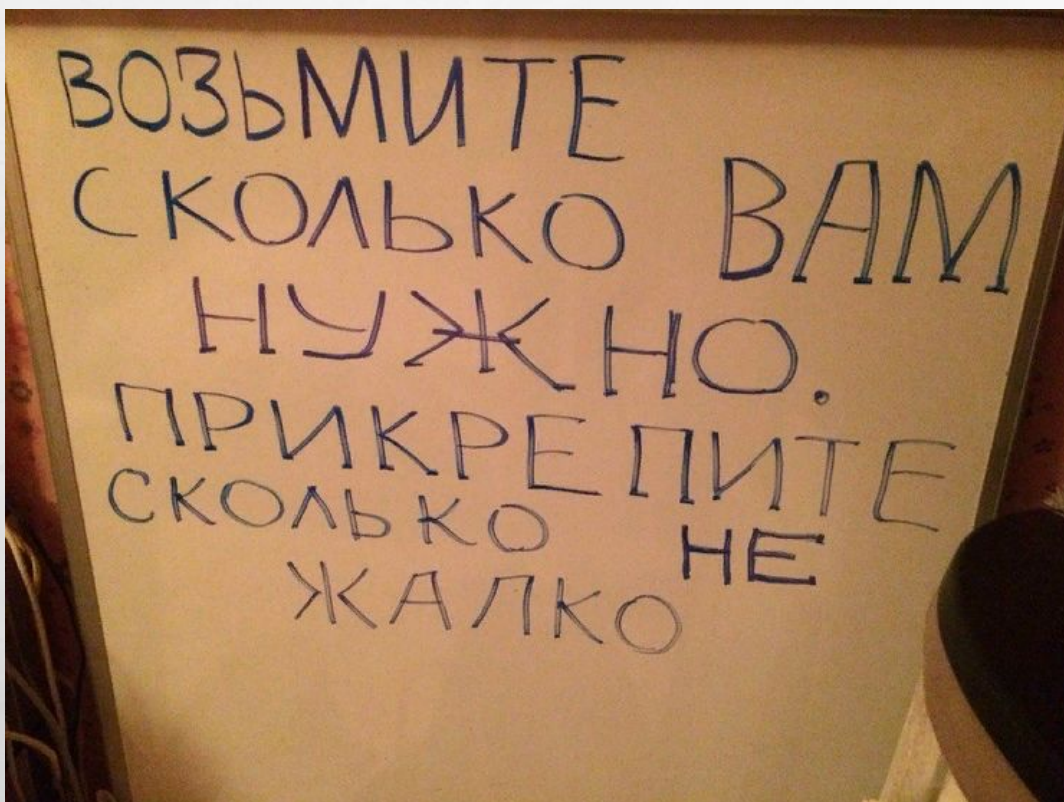 ВОЗЬМИТЕ
СКОЛЬКО ВАМ
НУЖНО.
ПРИКРЕПИТЕ
СКОЛЬКО НЕ
ЖАЛКО